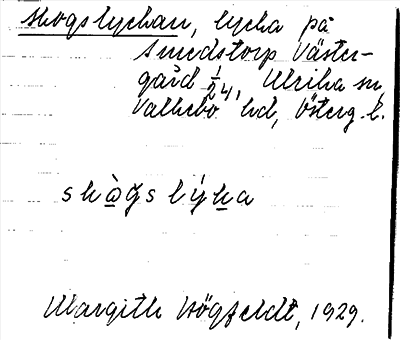 Skogslyckan, lycka på
Smedstorp Väster-
gård 1/24, Ulrika sn,
Valkebo hd, Österg. l.
skògslýka
Margith Högfeldt, 1929.